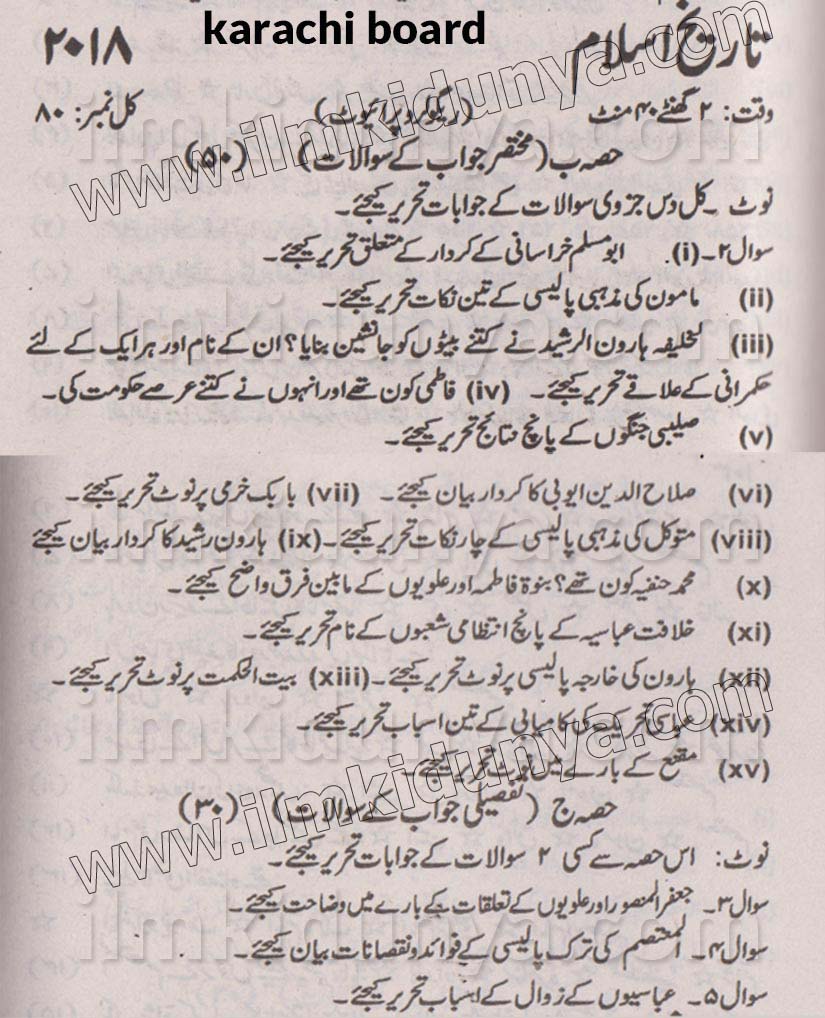 karachi board
تاریخ اسلام ۲۰۱۸
وقت: ۲ گھنٹے ۴۰ منٹ (ریگولر و پرائیوٹ) کل نمبر: ۸۰
حصہ ب (مختصر جواب کے سوالات) (۵۰)
نوٹ ۔ کل دس جزوی سوالات کے جوابات تحریر کیجئے۔
سوال ۲۔ (i). ابو مسلم خراسانی کے کردار کے متعلق تحریر کیجئے۔
(ii) مامون کی مذہبی پالیسی کے تین نکات تحریر کیجئے۔
(iii) خلیفہ ہارون الرشید نے کتنے بیٹوں کو جانشین بنایا؟ ان کے نام اور ہر ایک کے لئے
حکمرانی کے علاقے تحریر کیجئے۔ (iv) فاطمی کون تھے اور انہوں نے کتنے عرصے حکومت کی۔
(v) صلیبی جنگوں کے پانچ نتائج تحریر کیجئے۔
(vi) صلاح الدین ایوبی کا کردار بیان کیجئے۔ (vii) بابک خرمی پر نوٹ تحریر کیجئے۔
(viii) متوکل کی مذہبی پالیسی کے چار نکات تحریر کیجئے۔ (ix) ہارون رشید کا کردار بیان کیجئے
(x) محمد حنفیہ کون تھے؟ بنوۃ فاطمہ اور علویوں کے مابین فرق واضح کیجئے۔
(xi) خلافت عباسیہ کے پانچ انتظامی شعبوں کے نام تحریر کیجئے۔
(xii) ہارون کی خارجہ پالیسی پر نوٹ تحریر کیجئے۔ (xiii) بیت الحکمت پر نوٹ تحریر کیجئے۔
(xiv) عباسی تحریک کی کامیابی کے تین اسباب تحریر کیجئے۔
(xv) مقنع کے بارے میں نوٹ تحریر کیجئے۔
حصہ ج (تفصیلی جواب کے سوالات) (۳۰)
نوٹ: اس حصہ سے کسی ۲ سوالات کے جوابات تحریر کیجئے۔
سوال ۳۔ جعفر المنصور اور علویوں کے تعلقات کے بارے میں وضاحت کیجئے۔
سوال ۴۔ المعتصم کی ترک پالیسی کے فوائد و نقصانات بیان کیجئے۔
سوال ۵۔ عباسیوں کے زوال کے اسباب تحریر کیجئے۔
www.ilmkidunya.com
www.ilmkidunya.com
ilmkidunya.com
ilmkidunya.com
ilmkidunya.com
ilmkidunya.com
ilmkidunya.com